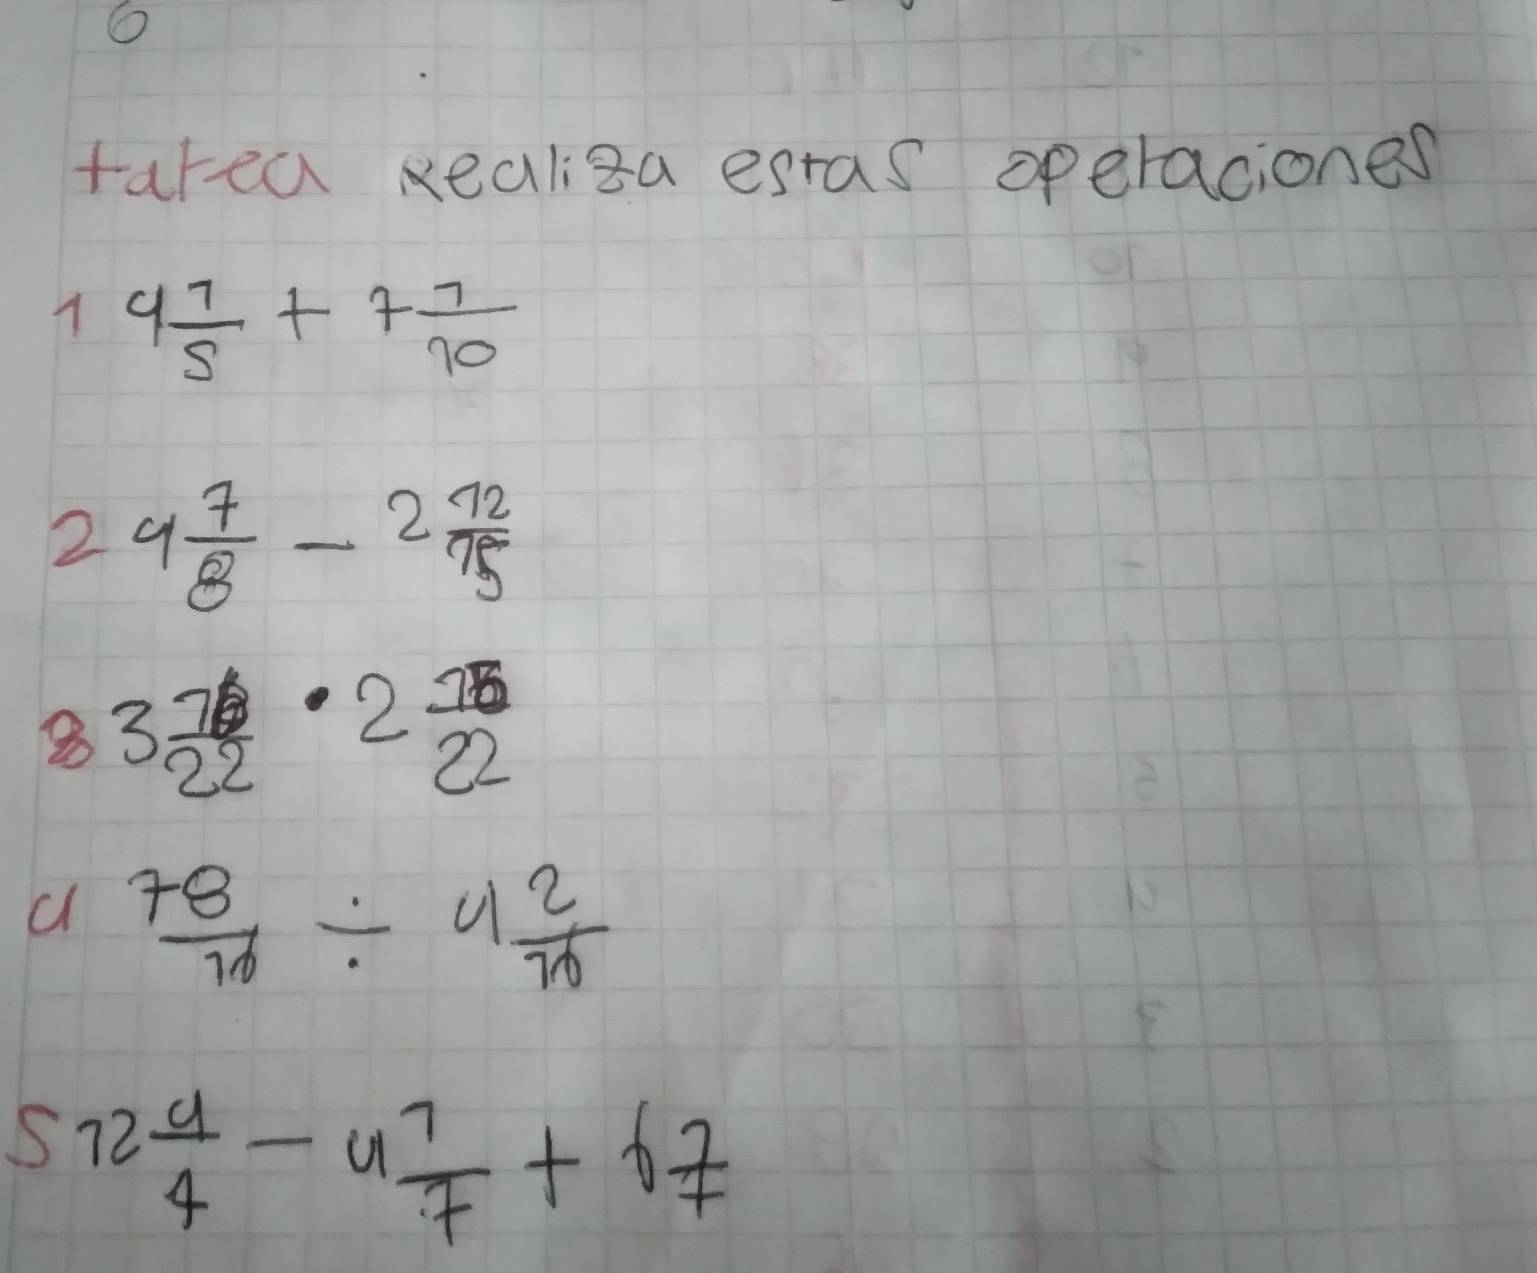 6
tarea realiza estas operaciones
1 4 1/5 + 7 1/10
2 4 7/8 - 2 12/15
3 3 16/22 · 2 15/22
4 78/16 ÷ 4 2/16
5 12 4/4 - 4 1/7 + 67